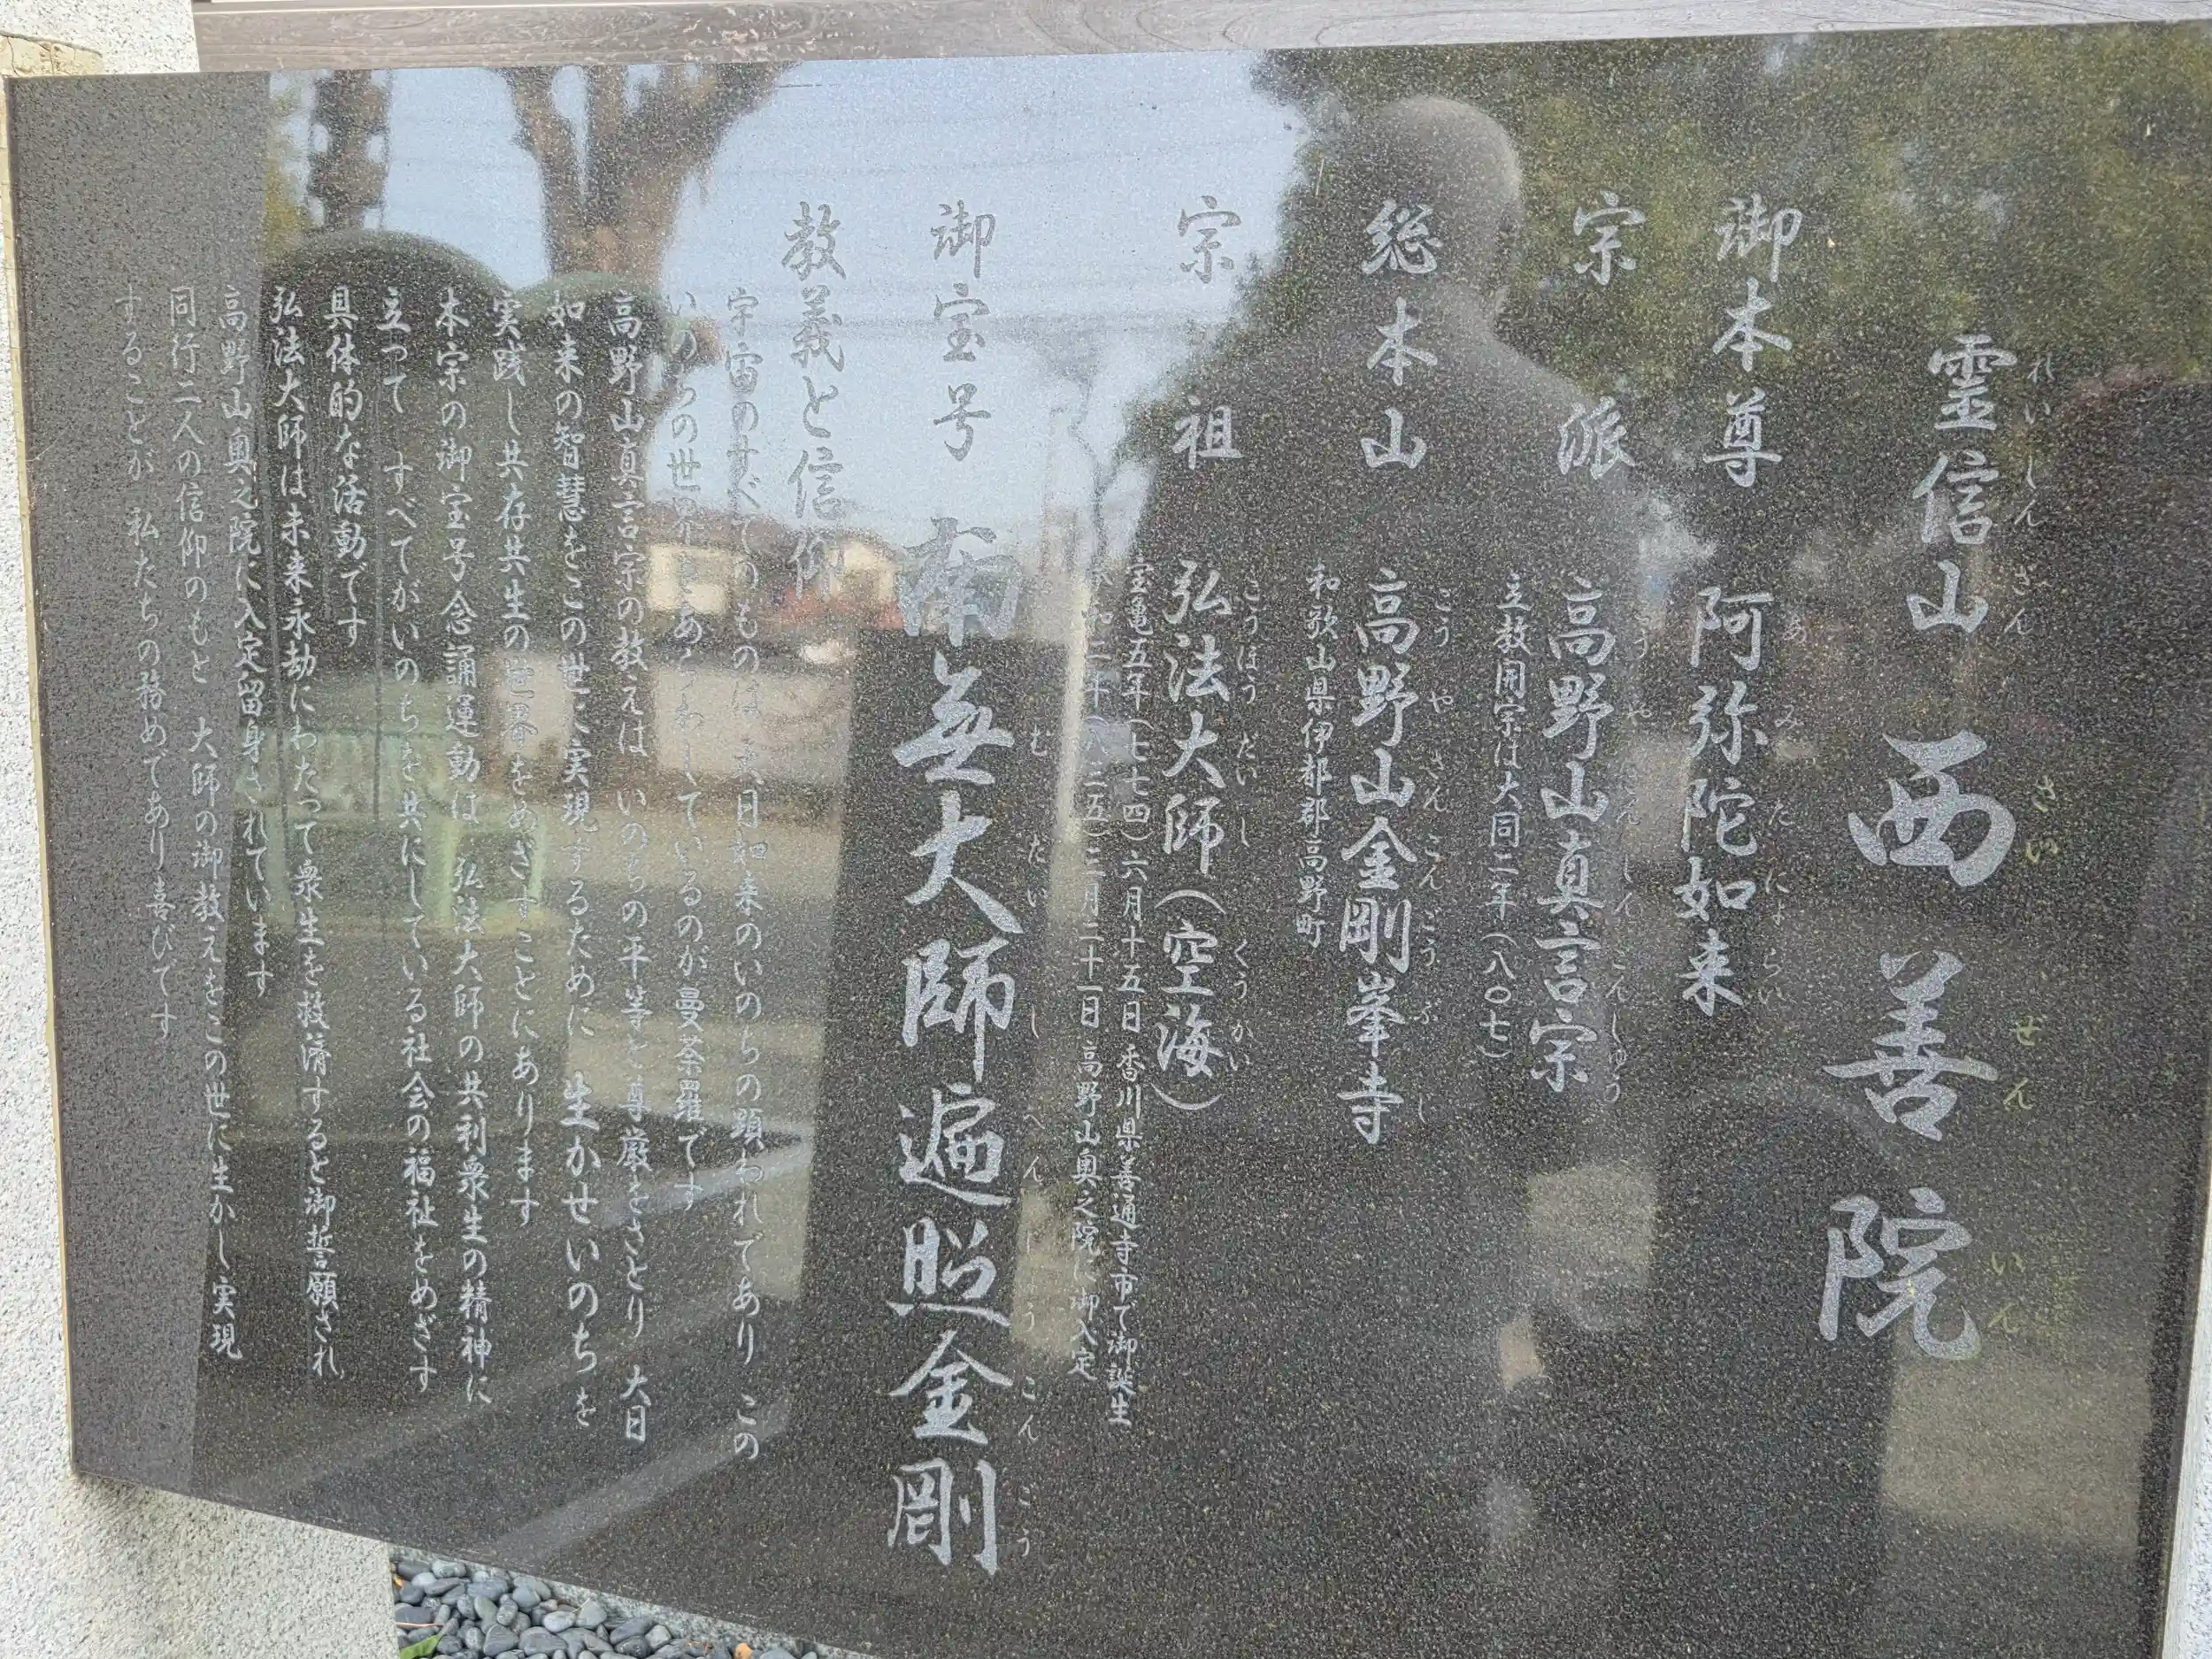 霊信山 西善院
れいしんざん さいぜんいん
御本尊 阿弥陀如来
あみだにょらい
宗派 高野山真言宗
こうやさんしんごんしゅう
立教開宗は大同二年(八〇七)
総本山 高野山金剛峯寺
こうやさんこんごうぶじ
和歌山県伊都郡高野町
宗祖 弘法大師(空海)
こうぼうたいし くうかい
宝亀五年(七七四)六月十五日 香川県善通寺市で御誕生
承和二年(八三五)三月二十一日 高野山奥之院に御入定
御宝号 南無大師遍照金剛
なむたいしへんじょうこんごう
教義と信仰
宇宙のすべてのものは 大日如来のいのちの顕われであり この
いのちの世界をあらわしているのが曼荼羅です
高野山真言宗の教えは いのちの平等と尊厳をさとり 大日
如来の智慧をこの世に実現するために 生かせいのちを
実践し共存共生の世界をめざすことにあります
本宗の御宝号念誦運動は 弘法大師の共利衆生の精神に
立って すべてがいのちを共にしている社会の福祉をめざす
具体的な活動です
弘法大師は未来永劫にわたって衆生を救済すると御誓願され
高野山奥之院に入定留身されています
同行二人の信仰のもと 大師の御教えをこの世に生かし実現
することが 私たちの務めであり喜びです